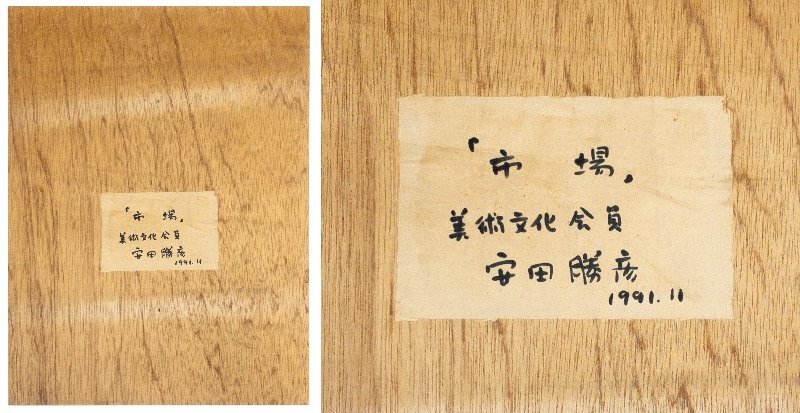 「市場」
美術文化会員
安田勝彦
1991.11
「市場」
美術文化会員
安田勝彦
1991.11